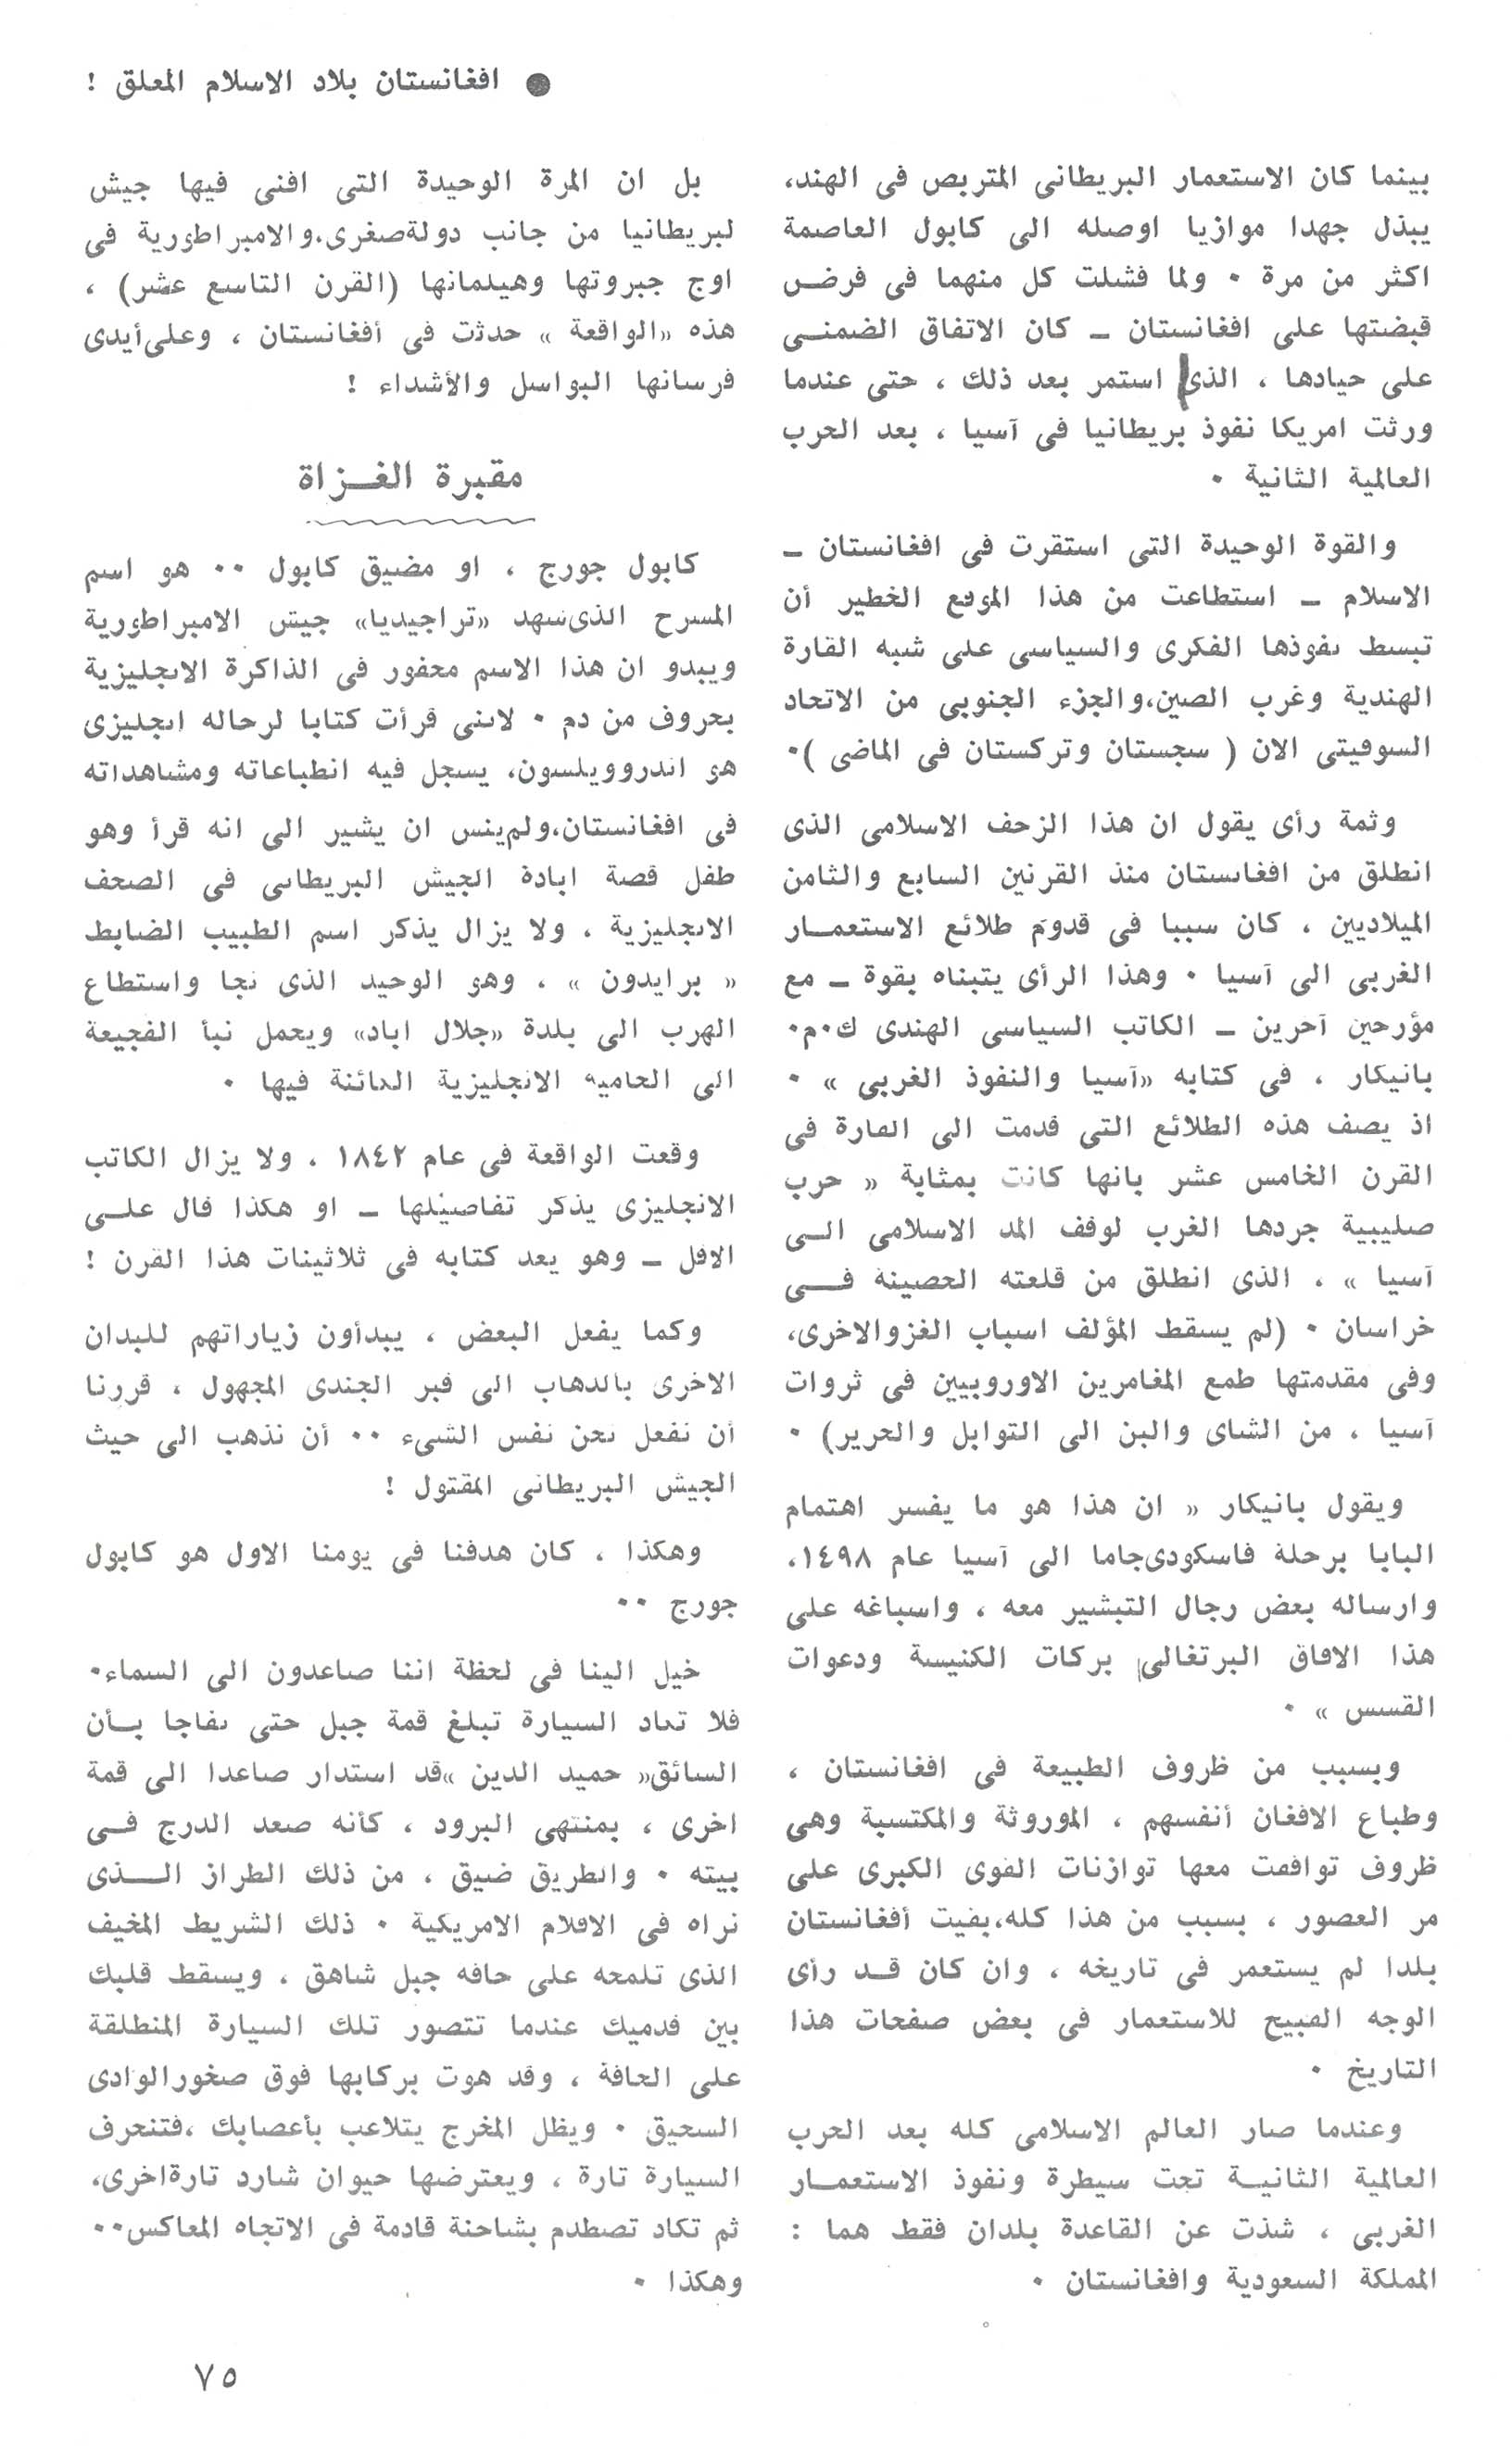 ● افغانستان بلاد الاسلام المعلق !
بينما كان الاستعمار البريطانى المتربص فى الهند،
يبذل جهدا موازيا اوصله الى كابول العاصمة
اكثر من مرة ٠ ولما فشلت كل منهما فى فرض
قبضتها على افغانستان – كان الاتفاق الضمنـى
على حيادها ، الذى استمر بعد ذلك ، حتى عندما
ورثت امريكا نفوذ بريطانيا فى آسيا ، بعد الحرب
العالمية الثانية ٠
والقوة الوحيدة التى استقرت فى افغانستان –
الاسلام – استطاعت من هذا الموقع الخطير أن
تبسط نفوذها الفكرى والسياسى على شبه القارة
الهندية وغرب الصين،والجزء الجنوبى من الاتحاد
السوفيتى الان ( سجستان وتركستان فى الماضى )٠
وثمة رأى يقول ان هذا الزحف الاسلامى الذى
انطلق من افغانستان منذ القرنين السابع والثامن
الميلاديين ، كان سببا فى قدوم طلائع الاستعمـار
الغربى الى آسيا ٠ وهذا الرأى يتبناه بقوة – مع
مؤرحين آخرين – الكاتب السياسى الهندى ك٠م٠
بانيكار ، فى كتابه «آسيا والنفوذ الغربى » ٠
اذ يصف هذه الطلائع التى قدمت الى القارة فى
القرن الخامس عشر بانها كانت بمثابة « حرب
صليبية جردها الغرب لوقف المد الاسلامى الـى
آسيا » ، الذى انطلق من قلعته الحصينة فــى
خراسان ٠ (لم يسقط المؤلف اسباب الغزوالاخرى،
وفى مقدمتها طمع المغامرين الاوروبيين فى ثروات
آسيا ، من الشاى والبن الى التوابل والحرير) ٠
ويقول بانيكار « ان هذا هو ما يفسر اهتمام
البابا برحلة فاسكودى‌جاما الى آسيا عام ١٤٩٨،
وارساله بعض رجال التبشير معه ، واسباغه على
هذا الافاق البرتغالى بركات الكنيسة ودعوات
القسس » ٠
وبسبب من ظروف الطبيعة فى افغانستان ،
وطباع الافغان أنفسهم ، الموروثة والمكتسبة وهى
ظروف توافقت معها توازنات القوى الكبرى على
مر العصور ، بسبب من هذا كله،بقيت أفغانستان
بلدا لم يستعمر فى تاريخه ، وان كان قـد رأى
الوجه القبيح للاستعمار فى بعض صفحات هذا
التاريخ ٠
وعندما صار العالم الاسلامى كله بعد الحرب
العالمية الثانيـة تحت سيطرة ونفوذ الاستعمـار
الغربى ، شذت عن القاعدة بلدان فقط هما :
المملكة السعودية وافغانستان ٠
بل ان المرة الوحيدة التى افنى فيها جيش
لبريطانيا من جانب دولة‌صغرى،والامبراطورية فى
اوج جبروتها وهيلمانها (القرن التاسع عشر) ،
هذه «الواقعة » حدثت فى أفغانستان ، وعلى‌أيدى
فرسانها البواسل والأشداء !
مقبرة الغــزاة
كابول جورج ، او مضيق كابول ٠٠ هو اسم
المسرح الذى‌شهد «تراجيديا» جيش الامبراطورية
ويبدو ان هذا الاسم محفور فى الذاكرة الانجليزية
بحروف من دم ٠ لاننى قرأت كتابا لرحاله انجليزى
هو اندروويلسون، يسجل فيه انطباعاته ومشاهداته
فى افغانستان،ولم‌ينس ان يشير الى انه قرأ وهو
طفل قصة ابادة الجيش البريطانى فى الصحف
الانجليزية ، ولا يزال يذكر اسم الطبيب الضابط
« برايدون » ، وهو الوحيد الذى نجا واستطاع
الهرب الى بلدة «جلال اباد» ويحمل نبأ الفجيعة
الى الحاميه الانجليزية الكائنة فيها ٠
وقعت الواقعة فى عام ١٨٤٢ ، ولا يزال الكاتب
الانجليزى يذكر تفاصيلها – او هكذا قال علـى
الاقل – وهو يعد كتابه فى ثلاثينات هذا القرن !
وكما يفعل البعض ، يبدأون زياراتهم للبدان
الاخرى بالذهاب الى قبر الجندى المجهول ، قررنا
أن نفعل نحن نفس الشىء ٠٠ أن نذهب الى حيث
الجيش البريطانى المقتول !
وهكذا ، كان هدفنا فى يومنا الاول هو كابول
جورج ٠٠
خيل الينا فى لحظة اننا صاعدون الى السماء٠
فلا تكاد السيارة تبلغ قمة جبل حتى نفاجا بـأن
السائق« حميد الدين »قد استدار صاعدا الى قمة
اخرى ، بمنتهى البرود ، كأنه صعد الدرج فـى
بيته ٠ والطريق ضيق ، من ذلك الطراز الــذى
نراه فى الافلام الامريكية ٠ ذلك الشريط المخيف
الذى تلمحه على حافه جبل شاهق ، ويسقط قلبك
بين قدميك عندما تتصور تلك السيارة المنطلقة
على الحافة ، وقد هوت بركابها فوق صخورالوادى
السحيق ٠ ويظل المخرج يتلاعب بأعصابك ،فتنحرف
السيارة تارة ، ويعترضها حيوان شارد تارةاخرى،
ثم تكاد تصطدم بشاحنة قادمة فى الاتجاه المعاكس٠٠
وهكذا ٠
٧٥